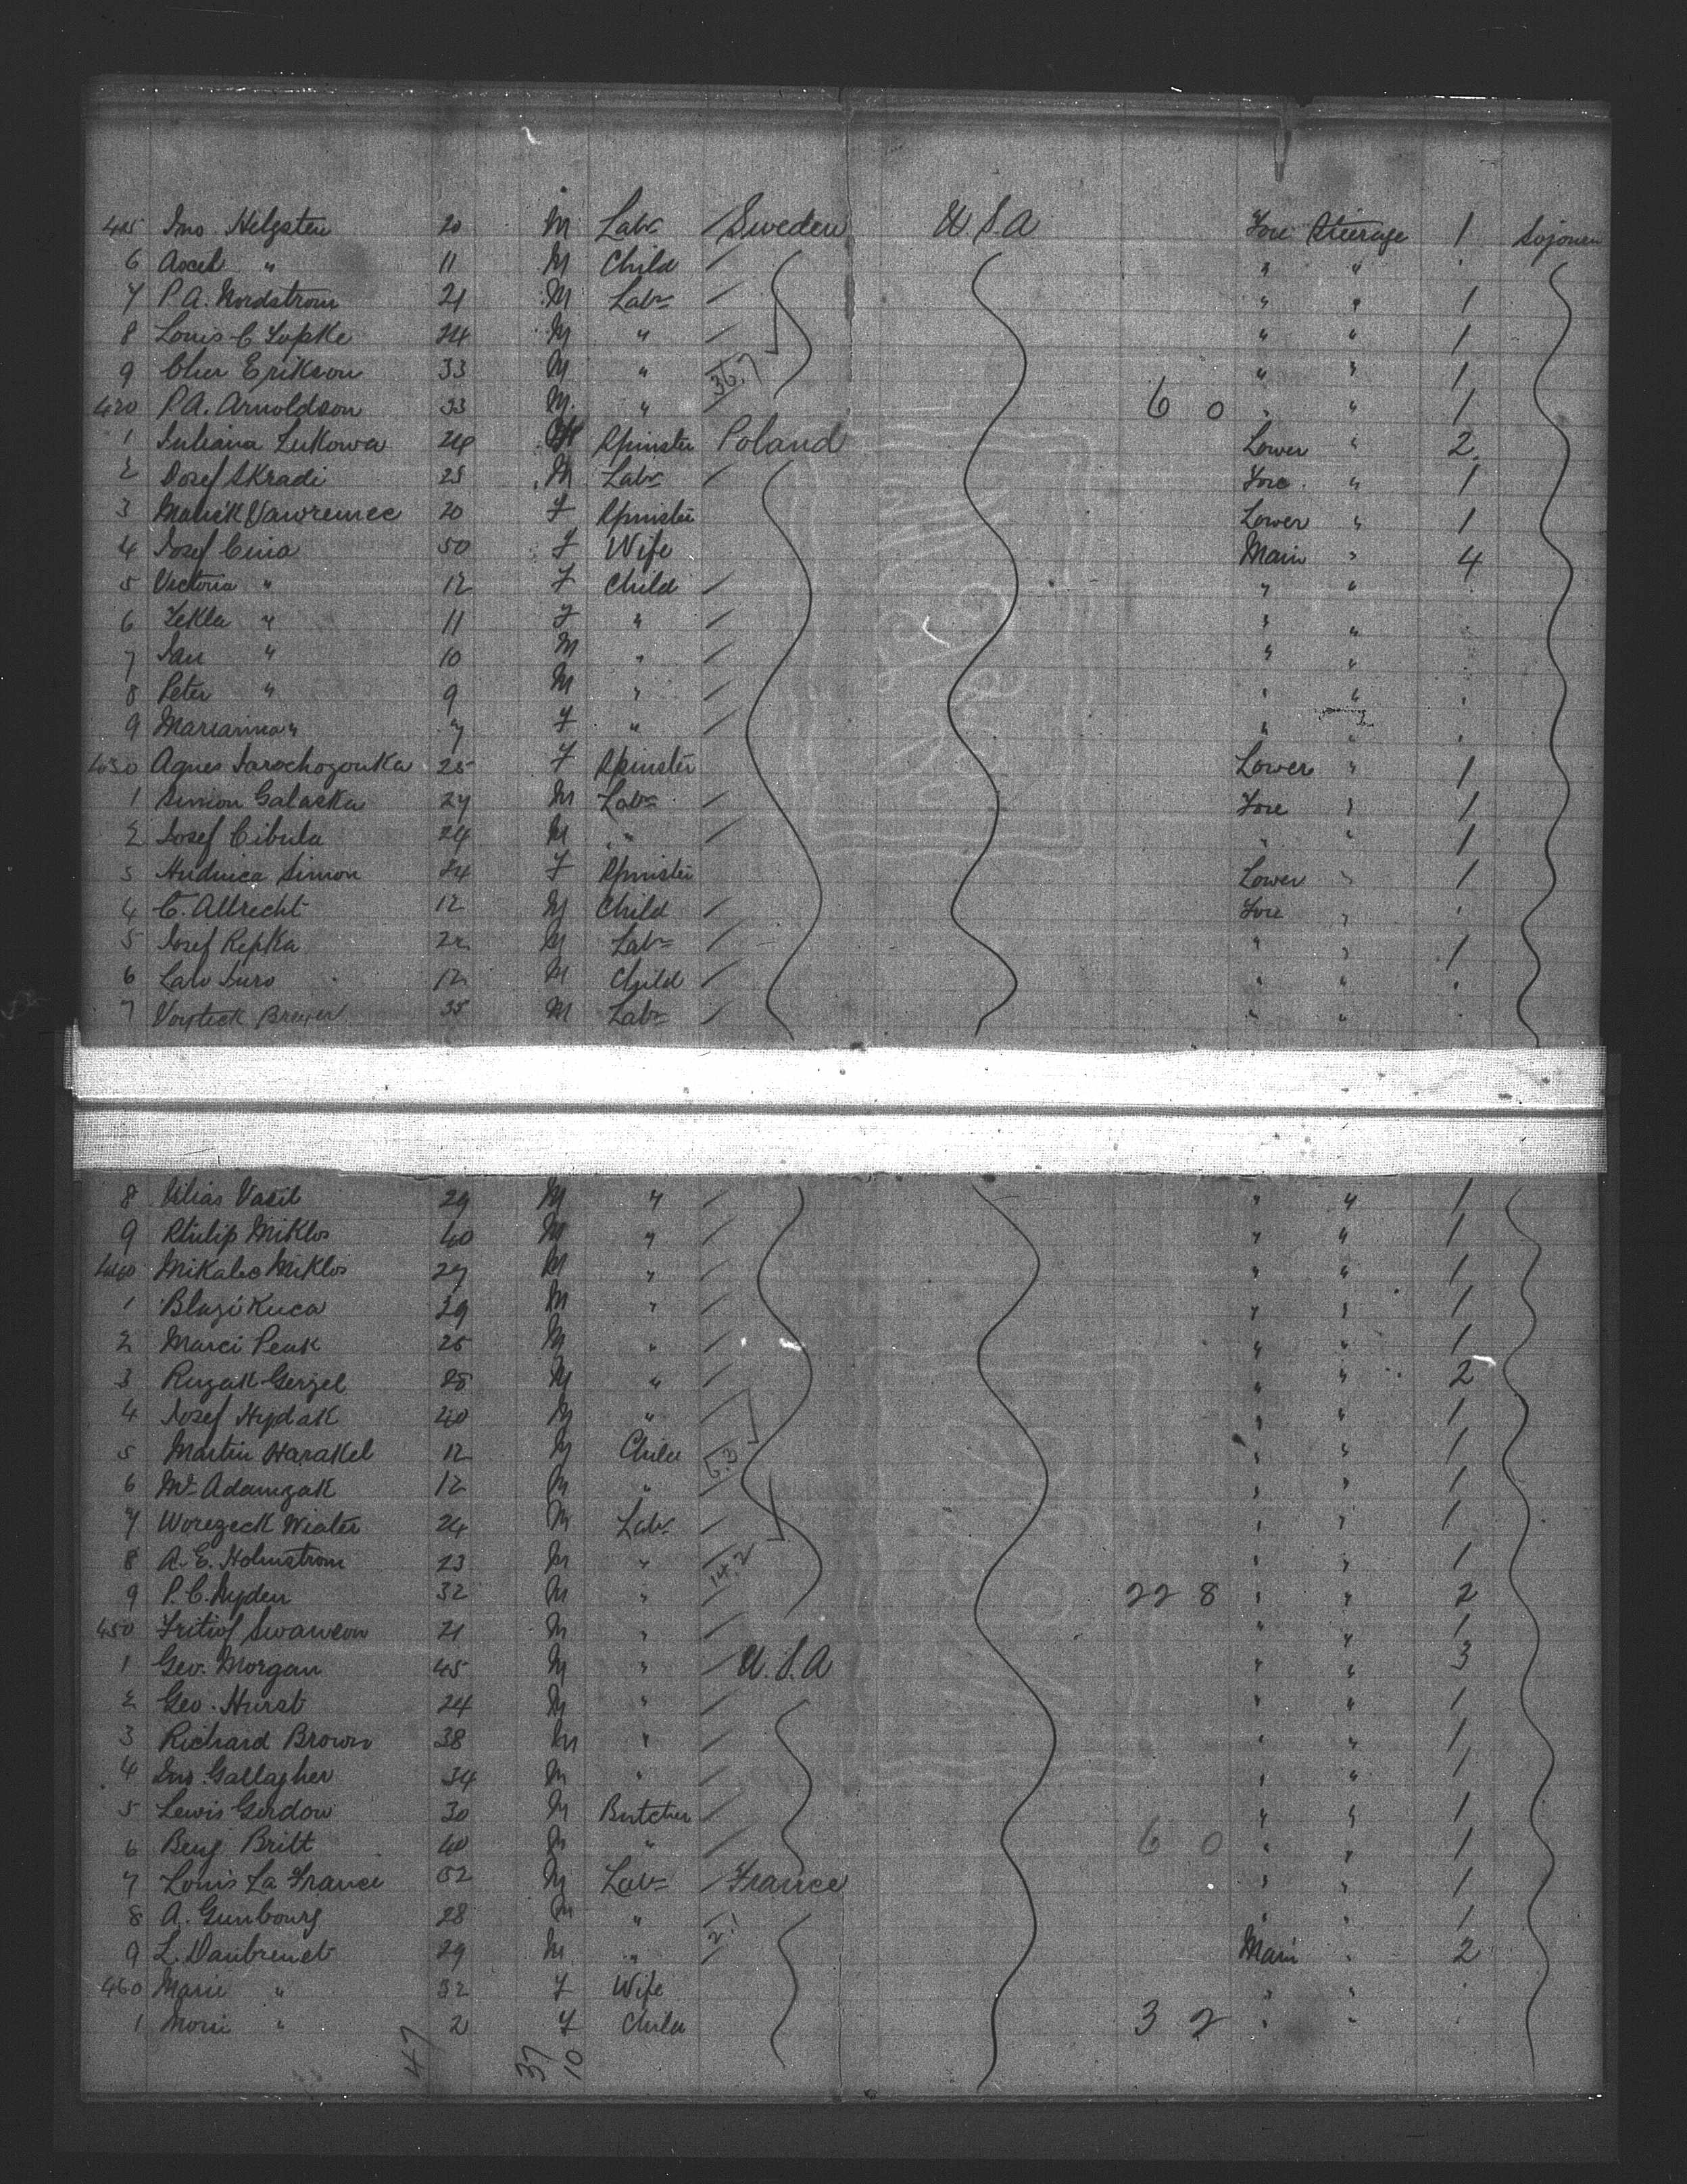 415 Jno. Helgsten 20 M Labr / Sweden U.S.A Fore Steerage 1 Sojourn
6 Axel " 11 M Child / " " .
7 P.A. Nordstrom 21 M Labr / " " 1
8 Louis C Lopke 24 M " / " " 1
9 Oliver Erikson 33 M " / 36.7 " " 1
420 P.A. Arnoldson 33 M " / 6 0 " " 1
1 Juliana Lukowa 24 F Spinster Poland Lower " 2
2 Josef Skradi 25 M Labr / Fore " 1
3 Marick Vawremec 20 F Spinster Lower " 1
4 Josef Cina 50 F Wife Main " 4
5 Victoria " 12 F Child / " "
6 Tekla " 11 F " / " " .
7 Jan " 10 M " / " " .
8 Peter " 9 M " / " " .
9 Marianna " 7 F " / " " .
430 Agnes Sarochozonka 25 F Spinster Lower " 1
1 Simon Galaska 27 M Labr / Fore " 1
2 Josef Cibula 24 M " / " " 1
3 Simon 24 F Spinster Lower " 1
4 C. Albrecht 12 M Child / Fore " .
5 Josef Repka 22 M Labr / " " 1
6 Juro 12 M Child / " " .
7 Voyteck 35 M Labr / " " .
8 Vasil 29 M " / " " 1
9 Philip Miklos 40 M " / " " 1
440 Miklos 27 M " / " " 1
1 Blazi Kuca 29 M " / " " 1
2 Marci Penk 25 M " / " " 1
3 Ruzak Gerzel 28 M " / " " 2
4 Josef Hydak 40 M " / " " 1
5 Martin Harakel 12 M Child / 6.3 " " 1
6 Adamzak 12 M " / " " 1
7 Worezeck Wiater 24 M Labr / " " 1
8 A.E. Holmstrom 23 M " / 14.2 " " 1
9 P.C. Nyden 32 M " / 22 8 " " 2
450 Fritiof Swanson 21 M " / " " 1
1 Geo. Morgan 45 M " / U.S.A " " 3
2 Geo. Hurst 24 M " / " " 1
3 Richard Brown 38 M " / " " 1
4 Jno. Gallagher 34 M " / " " 1
5 Lewis Gerdow 30 M Butcher / " " 1
6 Benj Britt 40 M " / 6 0 " " 1
7 Louis La France 52 M Labr / France " " 1
8 A. Gunbourg 28 M " / 2.1 " " 1
9 L. Daubrenet 29 M " / Main " 2
460 Marie " 32 F Wife " " .
1 " 2 F Child 3 2 " " .
47 37 10